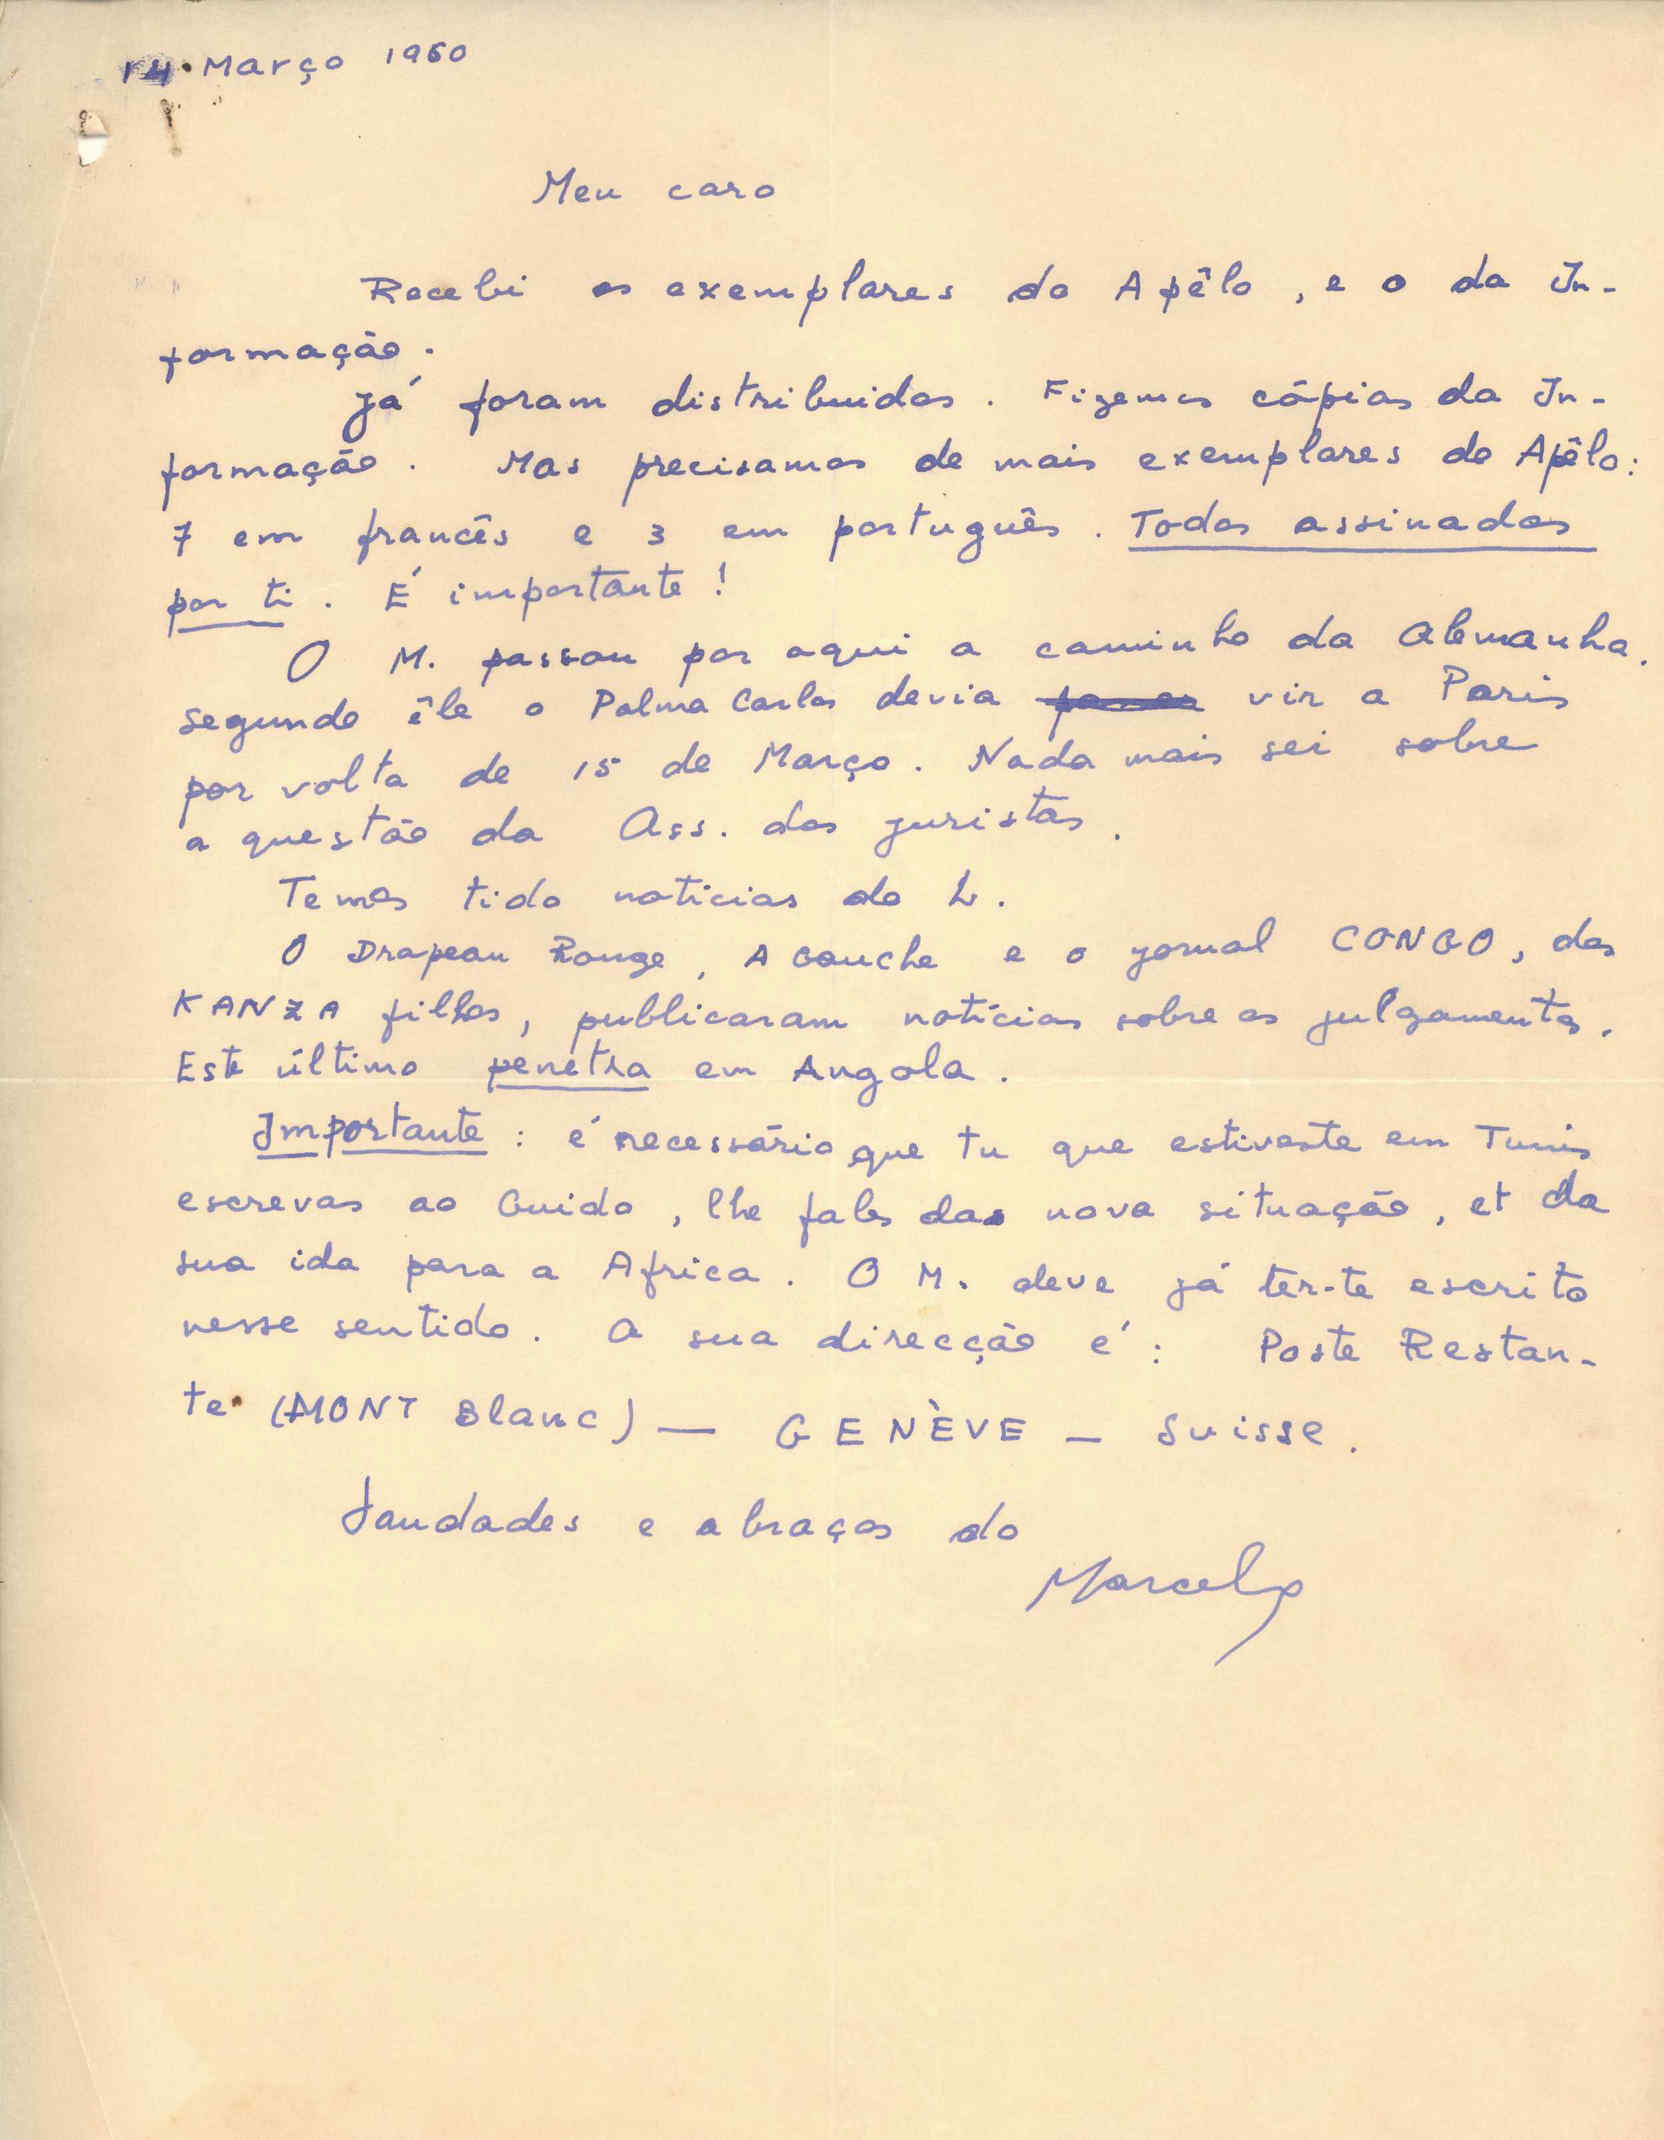 14. Março 1960
Meu caro
Recebi os exemplares do Apêlo, e o da In-
formação.
Já foram distribuidos. Fizemos cópias da In-
formação. Mas precisamos de mais exemplares do Apêlo:
7 em francês e 3 em português. Todos assinados
por ti. É importante!
O M. passou por aqui a caminho da Alemanha.
Segundo êle o Palma Carlos devia vir a Paris
por volta de 15 de Março. Nada mais sei sobre
a questão da Ass. dos juristas.
Temos tido notícias do L.
O Drapeau Rouge, A Gauche e o jornal CONGO, dos
KANZA filhos, publicaram notícias sobre os julgamentos.
Este último penetra em Angola.
Importante: é necessário que tu que estiveste em Tunis
escrevas ao Guido, lhe fales da nova situação, et da
sua ida para a Africa. O M. deve já ter-te escrito
nesse sentido. A sua direcção é: Poste Restan-
te (MONT Blanc) — GENÈVE — Suisse.
Saudades e abraços do
Marcelo